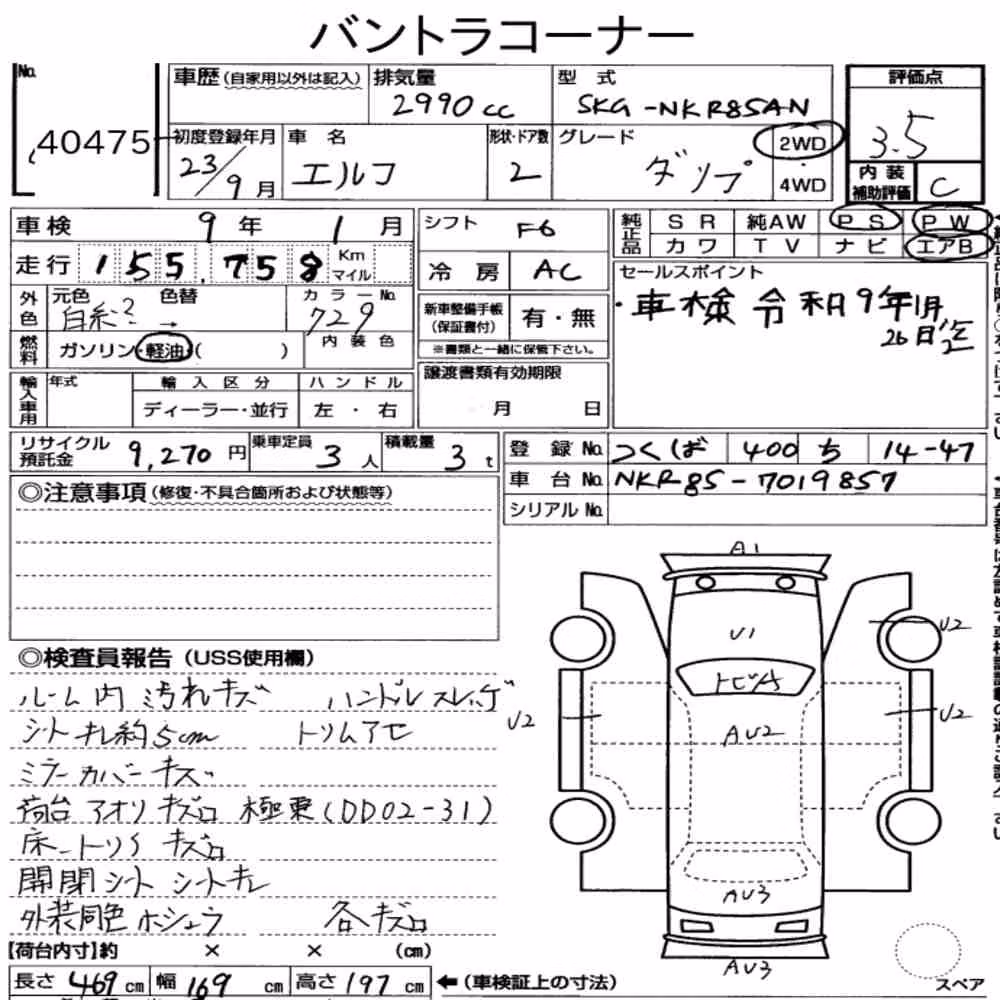 バントラコーナー
No. 40475
車歴 (自家用以外は記入)
排気量 2990cc
型式 SKG-NKR85AN
評価点 3.5
初度登録年月 23/9月
車名 エルフ
形状・ドア数 2
グレード ダンプ
2WD
・
4WD
内装補助評価 C
車検 9年 1月
シフト F6
純正品 SR 純AW PS PW
カワ TV ナビ エアB
走行 155,758 Km マイル
冷房 AC
セールスポイント
・車検令和9年1月
26日迄
外色 元色 色替 →
カラーNo. 729
新車整備手帳(保証書付) 有・無
※書類と一緒に保管下さい。
燃料 ガソリン・軽油・( )
内装色
輸入車用 年式 輸入区分 ハンドル
ディーラー・並行 左・右
譲渡書類有効期限
月 日
リサイクル預託金 9,270円
乗車定員 3人
積載量 3t
登録No. つくば 400 ち 14-47
車台No. NKR85-7019857
シリアルNo.
◎注意事項(修復・不具合箇所および状態等)
◎検査員報告(USS使用欄)
ルーム内汚れキズ ハンドルスレ
シートキレ約5cm トリムアセ
ミラーカバーキズ
荷台アオリキズ 極東(DD02-31)
床 キズ
開閉シート シートキレ
外装同色ホシュウ 各キズ
【荷台内寸】約 × × (cm)
長さ 469cm 幅 169cm 高さ 197cm ←(車検証上の寸法)
A1
U2
U1
トビA
U2
U2
AU2
AU3
AU3
スペア